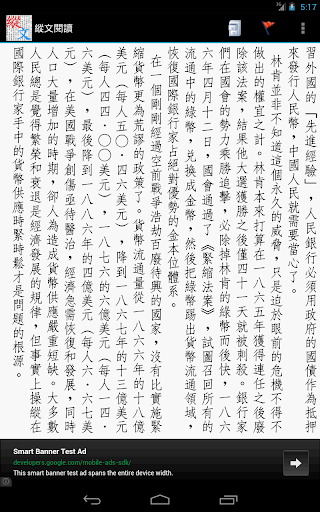 5:17
縱文
縱文閱讀
習外國的「先進經驗」，人民銀行必須用政府的國債作為抵押
來發行人民幣，中國人民就需要當心了。
林肯並非不知道這個永久的威脅，只是迫於眼前的危機不得不
做出的權宜之計。林肯本來打算在一八六五年獲得連任之後廢
除該法案，結果他大選獲勝之後僅四十一天就被刺殺。銀行家
們在國會的勢力乘勝追擊，必除掉林肯的綠幣而後快。一八六
六年四月十二日，國會通過了《緊縮法案》，試圖召回所有的
流通中的綠幣，兌換成金幣，然後把綠幣踢出貨幣流通領域，
恢復國際銀行家占絕對優勢的金本位體系。
在一個剛剛經過空前戰爭浩劫百廢待興的國家，沒有比實施緊
縮貨幣更為荒謬的政策了。貨幣流通量從一八六六年的十八億
美元（每人五〇．四六美元），降到一八六七年的十三億美元
（每人四四．〇〇美元），一八七六的六億美元（每人一四．
六美元），最後降到一八八六年的四億美元（每人六．六七美
元），在美國戰爭創傷亟待醫治，經濟急需恢復和發展，同時
人口大量增加的時期，卻人為造成貨幣供應嚴重短缺。大多數
人民總是覺得繁榮和衰退是經濟發展的規律，但事實上操縱在
國際銀行家手中的貨幣供應時緊時鬆才是問題的根源。
Smart Banner Test Ad
developers.google.com/mobile-ads-sdk/
This smart banner test ad spans the entire device width.